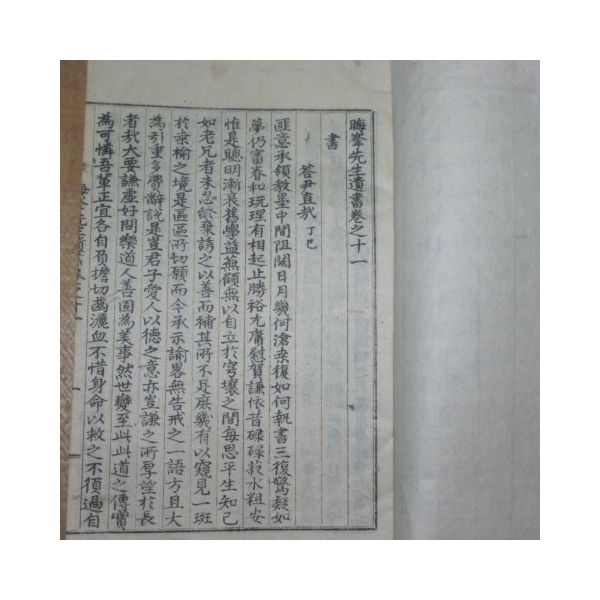 晦峯先生遺書卷之十一
書
答尹直哉 丁巳
匪意承領教墨中間阻闊日月幾何滄桑復如何執書三復驚疑如
夢仍審春和玩理有相起止勝裕尤庸慰賀謙依昔碌碌菽水粗安
惟是聰明漸衰舊學益蕪顧無以自立於穹壤之間每思平生知己
如老兄者未忍鐓棄誘之以善而補其所不足庶幾有以窺見一斑
於桑榆之境是區區所切願而今承示諭畧無告戒之一語方且大
為引重多費辭說是豈君子愛人以德之意亦豈謙之所厚望於長
者哉大要謙虛好問樂道人善固為美事然世變至此此道之傳實
為可憐吾輩正宜各自肩擔切齒灑血不惜身命以救之不須過自